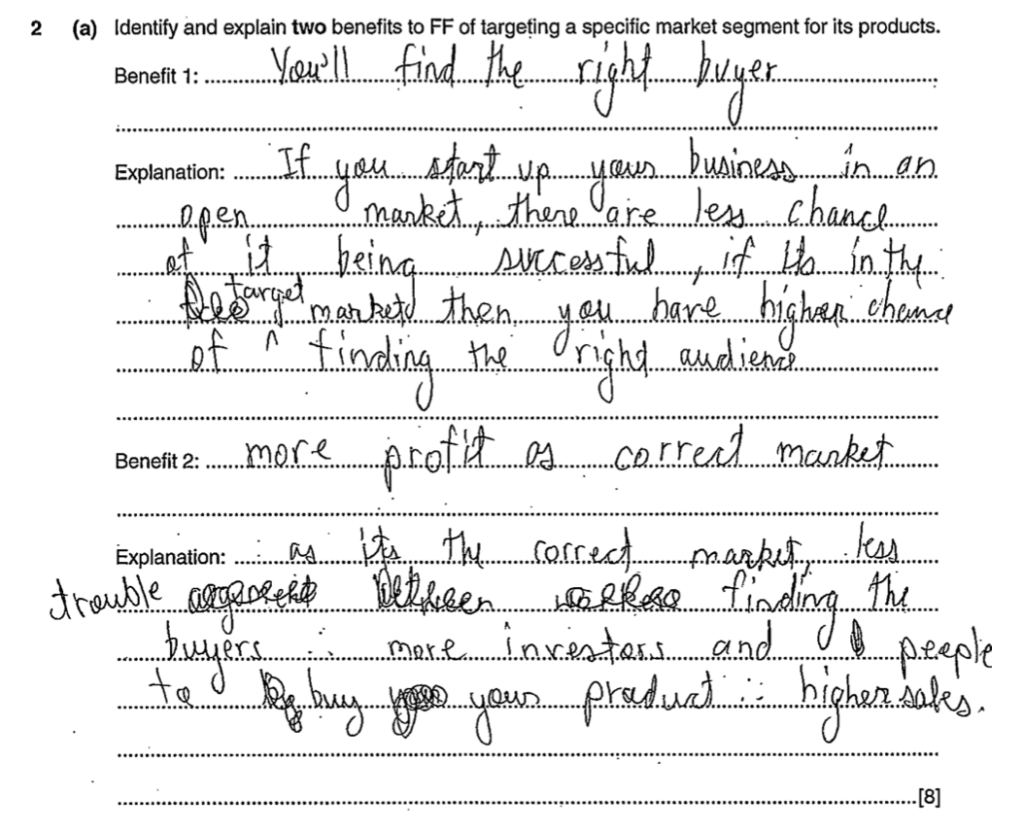 2 (a) Identify and explain two benefits to FF of targeting a specific market segment for its products.
Benefit 1: You'll find the right buyer
Explanation: If you start up your business in an
open market, there are less chance
of it being successful, if its in the
target market then you have higher chance
of finding the right audience
Benefit 2: more profit as correct market
Explanation: ∴ as its the correct market, less
trouble between finding the
buyers ∴ more investors and people
to buy your product ∴ higher sales.
[8]